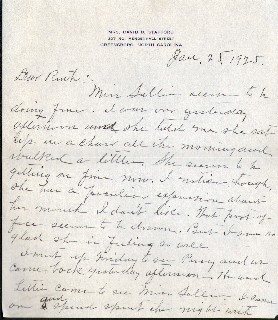 MRS. DAVID D. STAFFORD
GREENSBORO, NORTH CAROLINA
Jan. 25 1925.
Dear Ruth:
Miss Sallie seems to be
doing fine. I was over yesterday
afternoon and she told me she sat
up in a chair all the morning and
walked a little. She seems to be
getting on fine now. I notice though
she has a peculiar expression about
her mouth I don't like. That part of
face seems to be drawn. But I am so
glad she is feeling so well.
I went up Friday to see and we
came back yesterday afternoon. He and
came to see Miss Sallie
and spent the night with